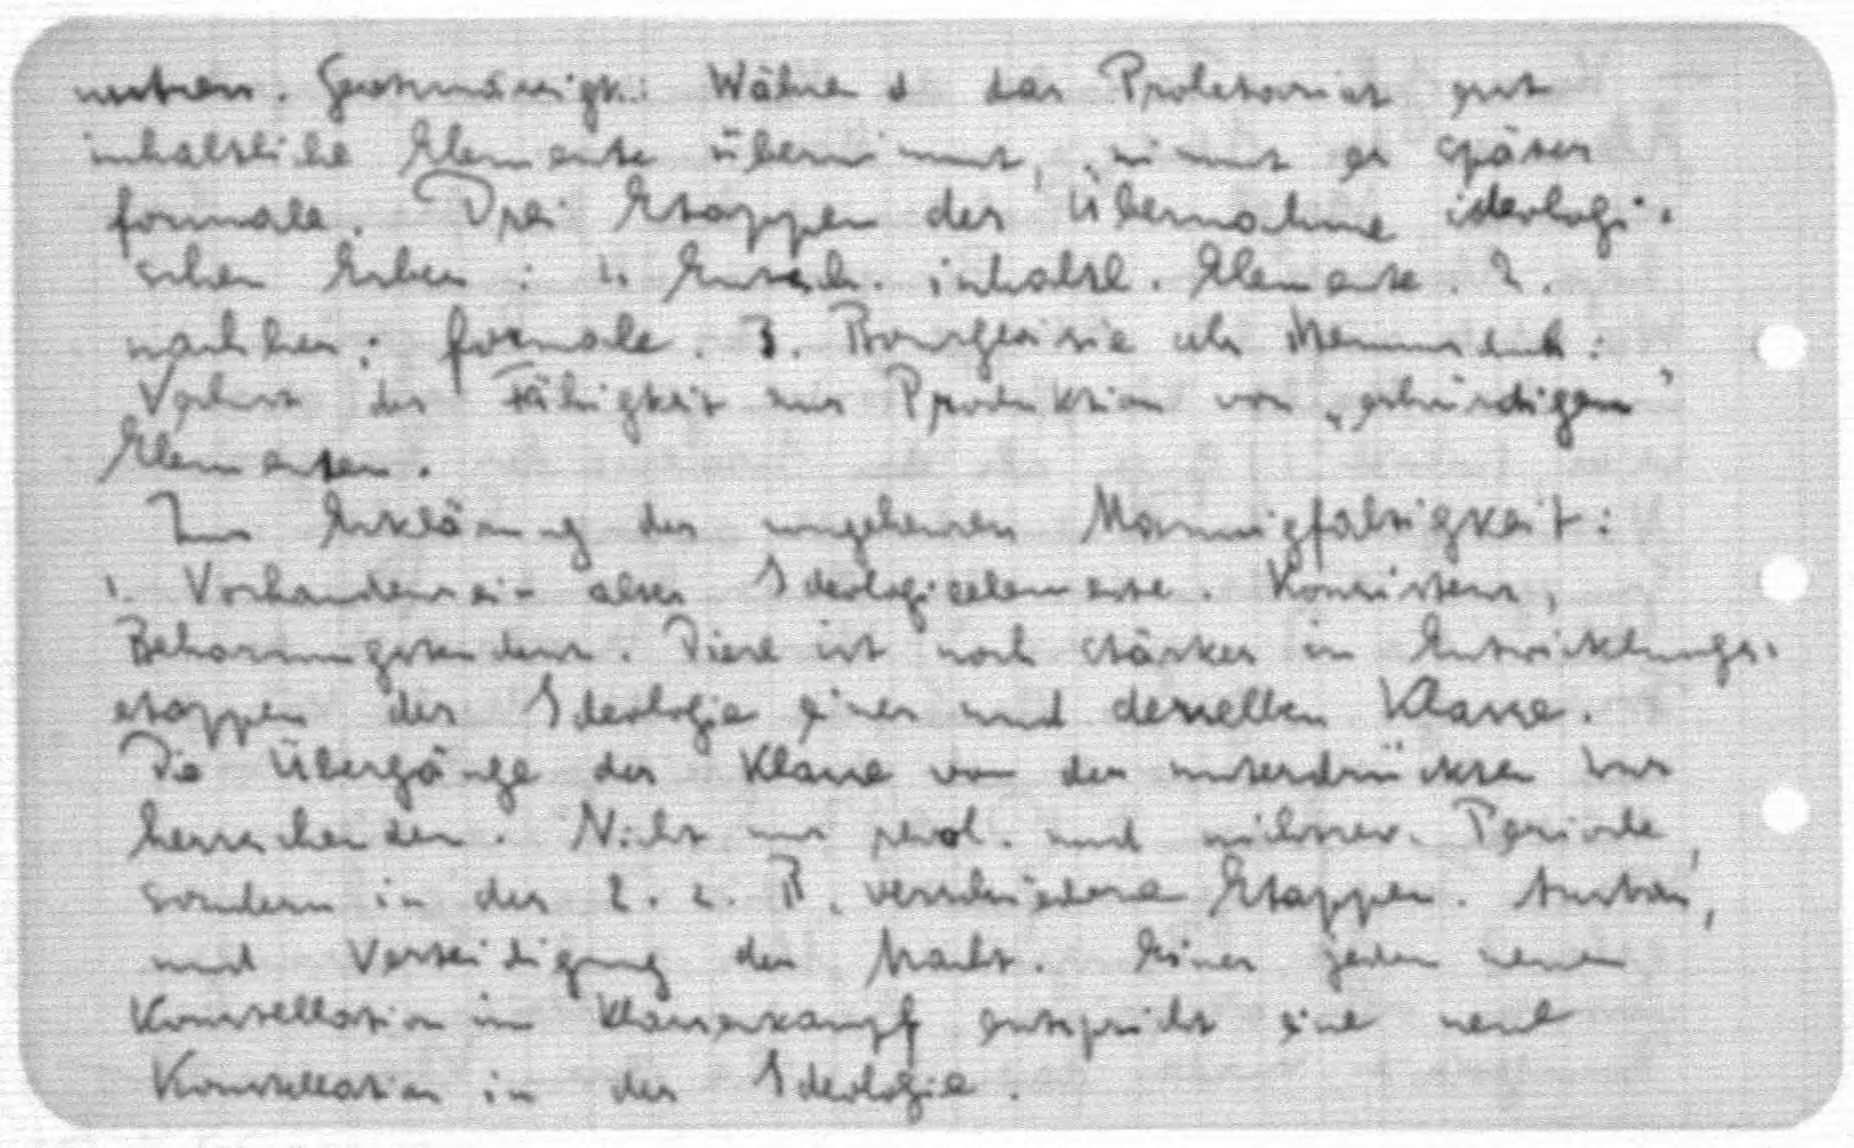 Während das Proletariat erst
inhaltliche Elemente übernimmt, nimmt es später
formale. Drei Etappen der Übernahme ideologi-
schen Erbes: 1. inhaltl. Elemente. 2.
nachher: formale. 3. Bourgeoisie als
Verlust der Fähigkeit zur Produktion von
Elementen.
Zur Erklärung der ungeheuren Mannigfaltigkeit:
1. Vorhandensein alter Ideologieelemente. Konsistenz,
Beharrungstendenz. Diese ist noch stärker in Entwicklungs-
etappen der Ideologie einer und derselben Klasse.
Die Übergänge der Klasse von der unterdrückten zur
herrschenden. Nicht nur revol. und Periode,
sondern in der 2. z. B. verschiedene Etappen.
und Verteidigung der Macht. Einer jeden neuen
Konstellation im Klassenkampf entspricht eine neue
Konstellation in der Ideologie.